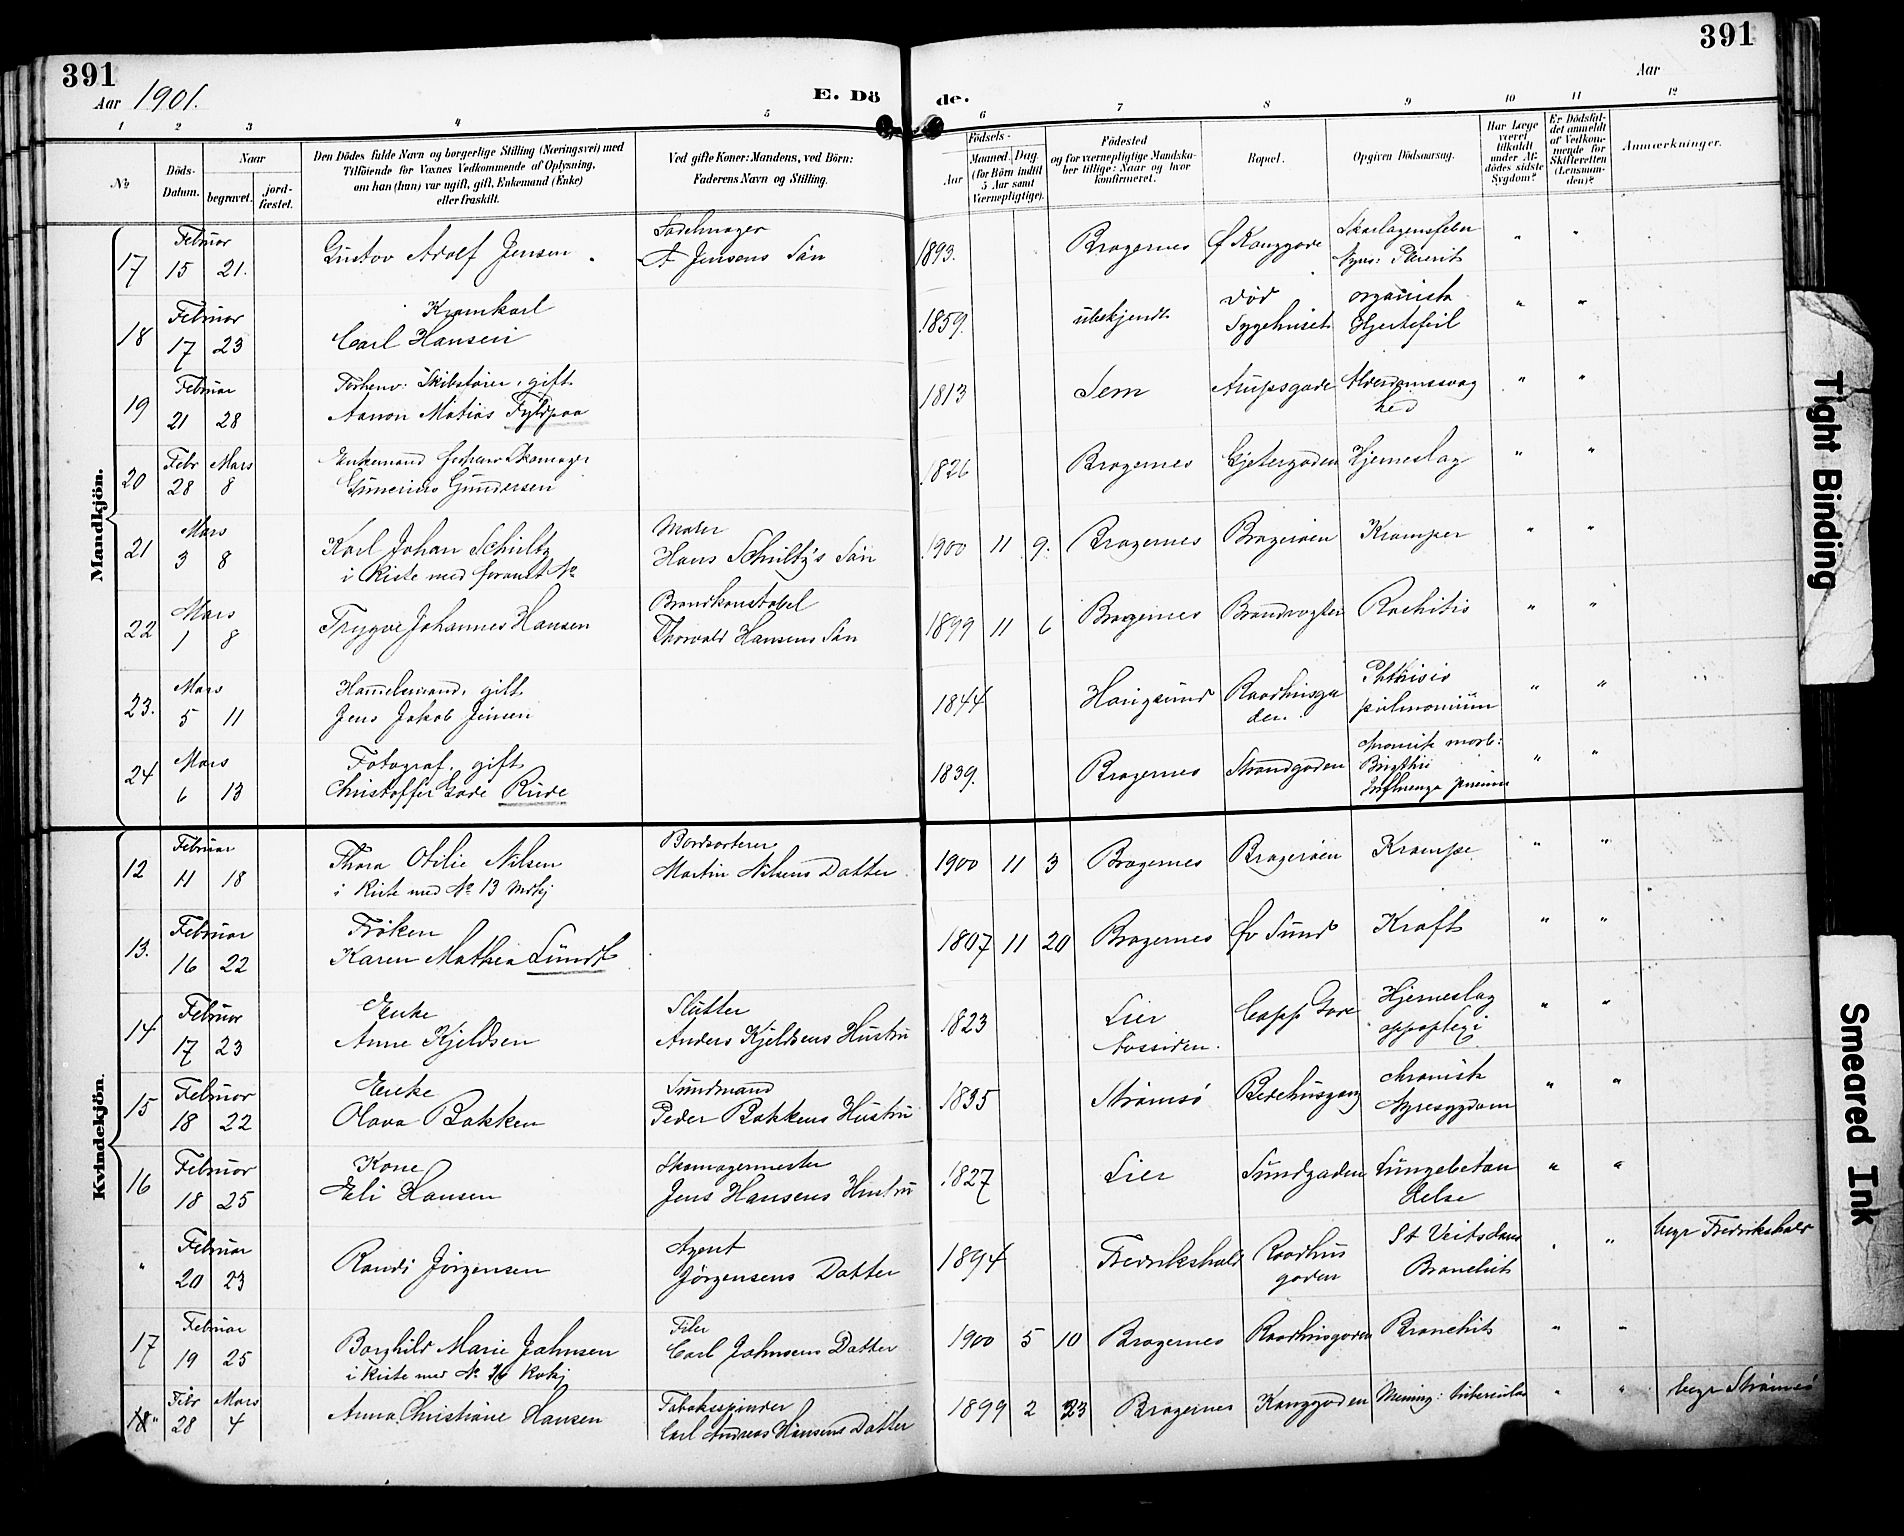 391
391
Aar 1901.
E. Dö de.
Aar
1 2 3 4 5 6 7 8 9 10 11 12
No
Döds-
Datum.
Naar
begravet.
jord-
fæstet.
Den Dödes fulde Navn og borgerlige Stilling (Næringsvei) med
Tilföiende for Voxnes Vedkommende af Oplysning,
om han (hun) var ugift, gift, Enkemand (Enke)
eller fraskilt.
Ved gifte Koner: Mandens, ved Börn:
Faderens Navn og Stilling.
Födsels-
Aar
Maaned. Dag.
(for Börn indtil
5 Aar samt
Værnepligtige).
Födested
og for værnepligtige Mandska-
ber tillige: Naar og hvor
konfirmeret.
Bopæl.
Opgiven Dödsaarsag.
Har Læge
været
tilkaldt
under Af-
dödes sidste
Sygdom?
Er Dödsfal-
det anmeldt
af Vedkom-
mende for
Skifteretten
(Lensman-
den)?
Anmærkninger.
Mandkjön.
17 Februar 15 21. Gustav Adolf Jensen Sadelmager A Jensens Søn 1893. Bragernes Ø Konggade Skarlagensfeber " "
18 Februar 17 23 Carl Hansen 1859. ubekjendt død Sygehuset organisk Hjertefeil " "
19 Februar 21 28 Forhenv: gift Aanon Matias Fyldpaa 1813 Sem Arupsgade Alderdomssvag hed " "
20 Febr 28 Mars 8 Enkemand Skomager Gunerius Gundersen 1826 Bragernes Gjetergaden Hjerneslag " "
21 Mars 3 8 Karl Johan Schultz i Kiste med No Maler Hans Schultz's Søn 1900 11 9. Bragernes Bragerøen Kramper " "
22 Mars 1 8 Trygve Johannes Hansen Brandkonstabel Thorvald Hansens Søn 1899 11 6 Bragernes Brandvagten Rachitis " "
23. Mars 5 11 Handelsmand, gift Jens Jakob Jensen 1844 Haugsund Raadhusga den. Phthisis pulmonum " "
24 Mars 6 13 Fotograf, gift Christoffer Gade Rude 1839. Bragernes Strandgaden chronisk morb: Brigthii Influenza pneum " "
Kvindekjön.
12 Februar 11 18 Thora Otilie Nilsen i Kiste med No 13 Mdkj Bordsorterer Martin Nilsens Datter 1900 11 3 Bragernes Bragerøen Krampe " "
13. Februar 16 22 Frøken Karen Mathea Lundh 1807 11 20 Bragernes Øv Sund Kræft " "
14 Februar 17 23 Enke Anne Kjeldsen Slutter Anders Kjeldsens Hustru 1823 Lier Capp Gade Hjerneslag appoplexi " "
15 Februar 18 22 Enke Olava Bakken Sundmand Peder Bakkens Hustru 1835 Strømsø Bedehusgang chronisk Nyresygdom " "
16 Februar 18 25 Kone Eli Hansen Skomagermester Jens Hansens Hustru 1827 Lier Sundgaden Lungebetæn delse " "
" Februar 20 23 Randi Jørgensen Agent Jørgensens Datter 1894 Fredrikshald Raadhus gaden St Veitsdans Bronchit " " begr Fredrikshald
17 Februar 19 25 Borghild Marie Johnsen i Kiste med No 16 Kvkj Filer Carl Johnsens Datter 1900 5 10 Bragernes Raadhusgaden Bronchit " "
18 " Febr 28 Mars 4 Anna Christiane Hansen Tobaksspinder Carl Andreas Hansens Datter 1899 2 23 Bragernes Konggaden Mening: tuberculos " " begr Strømsø
Tight Binding
Smeared Ink